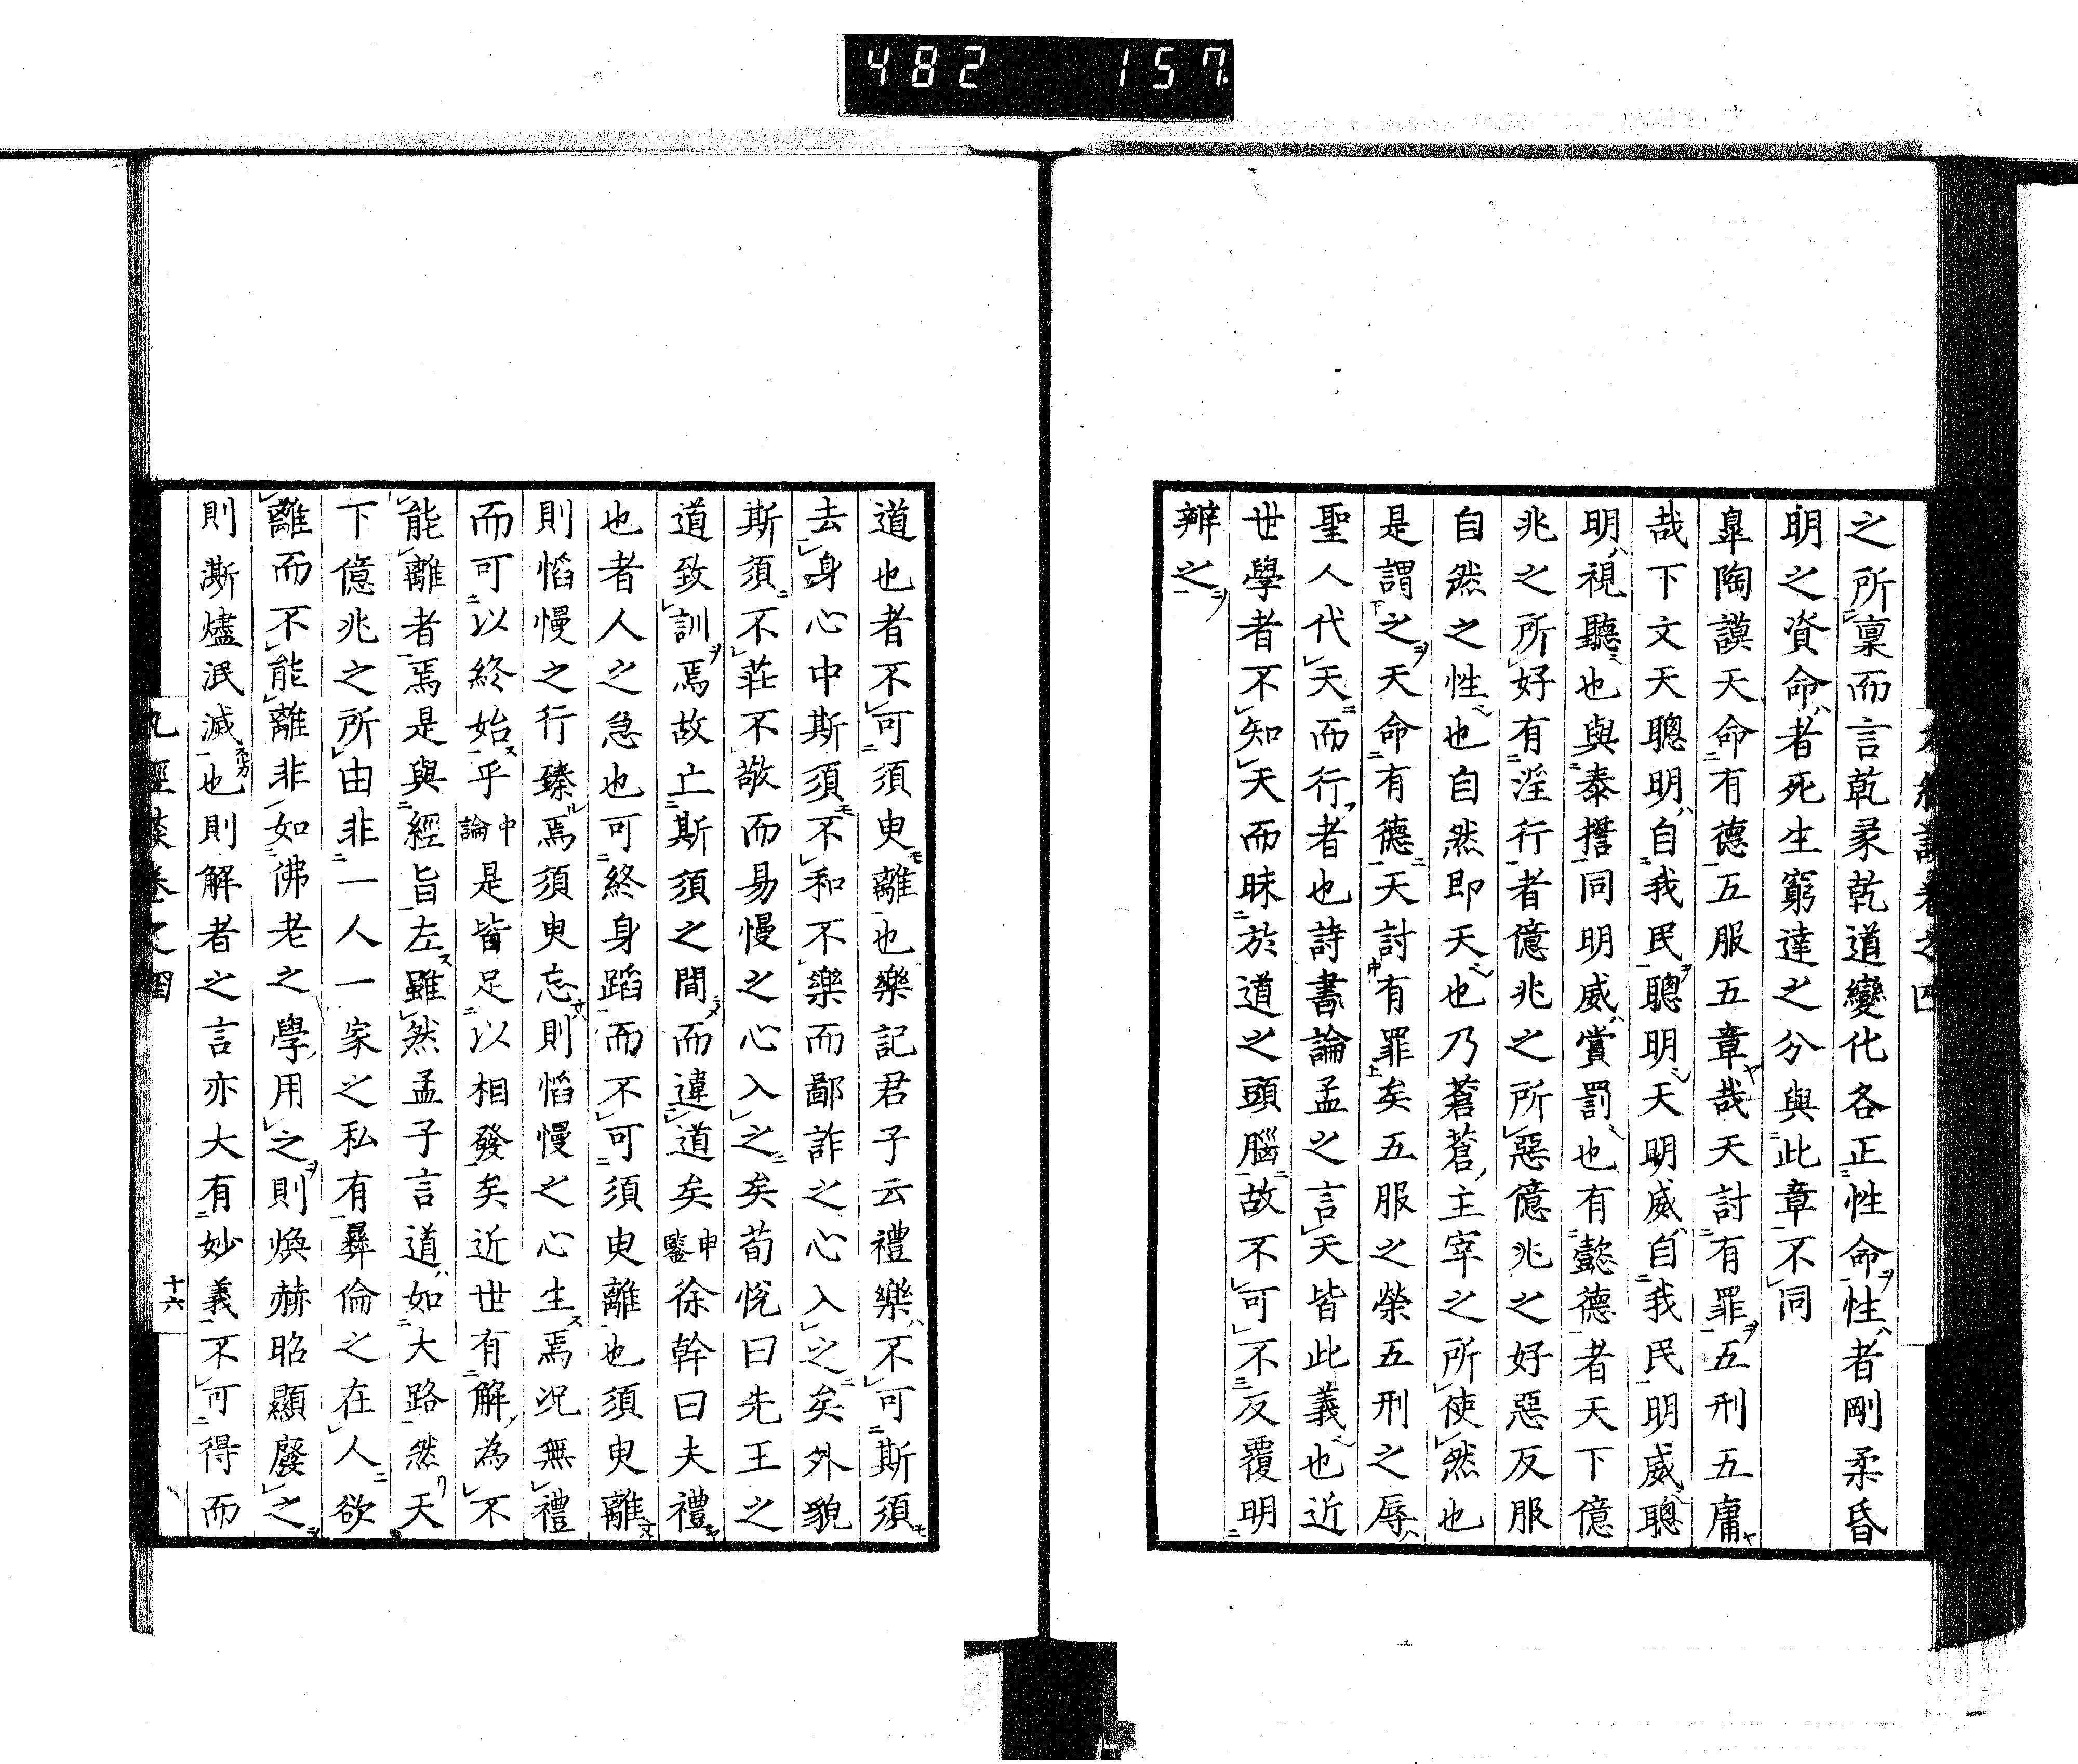 482 157
之所稟而言乾彖乾道變化各正性命性者剛柔昏
明之資命者死生窮達之分與此章不同
皐陶謨天命有德五服五章哉天討有罪五刑五庸
哉下文天聰明自我民聰明天明威自我民明威聰
明視聽也與泰誓同明威賞罰也有懿德者天下億
兆之所好有淫行者億兆之所惡億兆之好惡反服
自然之性也自然即天也乃蒼蒼主宰之所使然也
是謂之天命有德天討有罪矣五服之榮五刑之辱
聖人代天而行者也詩書論孟之言天皆此義也近
世學者不知天而昧於道之頭腦故不可不反覆明
辨之
道也者不可須臾離也樂記君子云禮樂不可斯須
去身心中斯須不和不樂而鄙詐之心入之矣外貌
斯須不莊不敬而易慢之心入之矣荀悅曰先王之
道致訓焉故亡斯須之間而違道矣申鑒徐幹曰夫禮
也者人之急也可終身蹈而不可須臾離也須臾離
則慆慢之行臻焉須臾忘則慆慢之心生焉況無禮
而可以終始乎中論是皆足以相發矣近世有解為不
能離者焉是與經旨左雖然孟子言道如大路然天
下億兆之所由非一人一家之私有彝倫之在人欲
離而不能離非如佛老之學用之則煥赫昭顯廢之
則澌燼泯滅也則解者之言亦大有妙義不可得而
九經談卷之四
十六